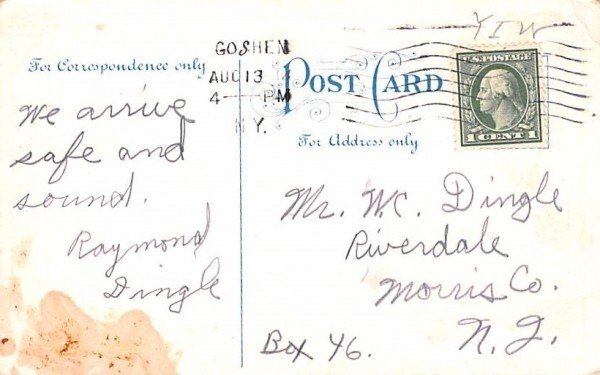 YIW
GOSHEN
AUG 13
4 — PM
N.Y.
U.S. POSTAGE
1 CENT 1
For Correspondence only
POST CARD
For Address only
We arrive
safe and
sound.
Raymond
Dingle
Mr. W.C. Dingle
Riverdale
Morris Co.
Box 46. N. J.